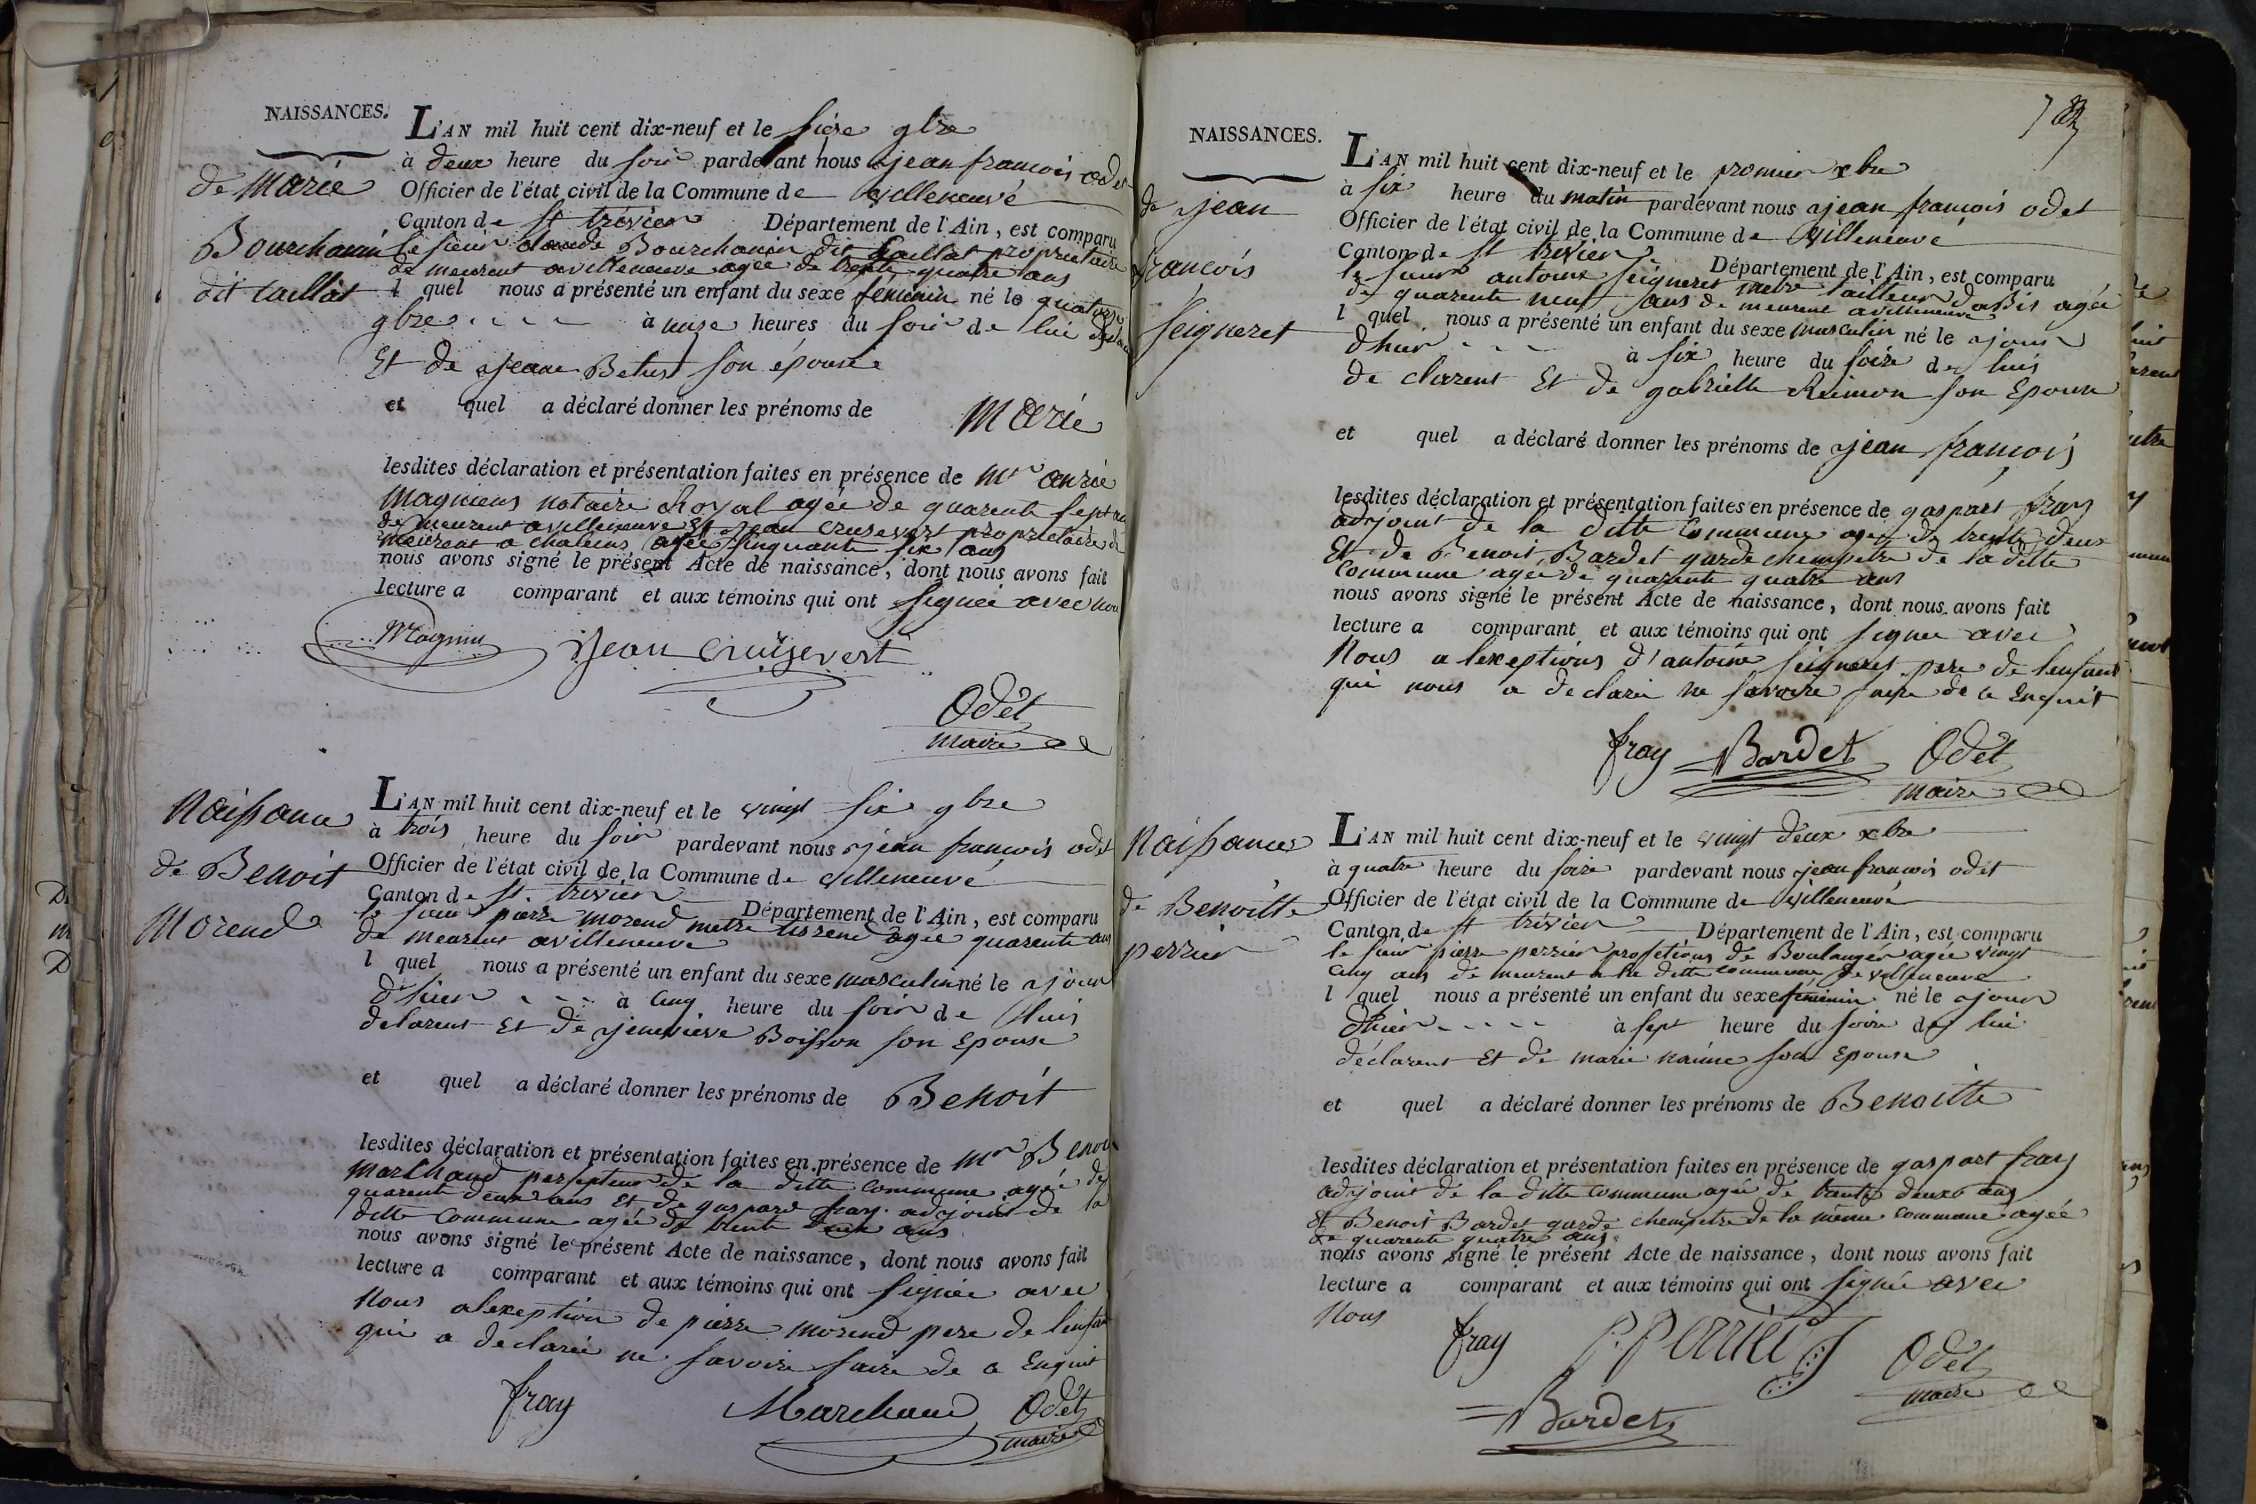 NAISSANCES.
de Marie
Bourchanin
dit Caillat
L'AN mil huit cent dix-neuf et le sieze 9bre
à deux heure du soir pardevant nous jean francois odet
Officier de l'état civil de la Commune de villeneuve
Canton de St trivier Département de l'Ain, est comparu
le sieur claude Bourchanin dit Caillat proprietaire
de meurent a villeneuve agée de trente quatre ans
l quel nous a présenté un enfant du sexe féminin né le quatorze
9bre - - - - à heures du soir de lui
Et de jeane Betus son épouse
et quel a déclaré donner les prénoms de Marie
lesdites déclaration et présentation faites en présence de Mr
Magniens notaire Royal agée de quarente sept
de meurent a villeneuve Et jean cruisevert proprietaire de
meurent a chaleins agée sinquante six ans
nous avons signé le présent Acte de naissance, dont nous avons fait
lecture a comparant et aux témoins qui ont signée avec nou
Magnin Jean Cruisevert
Odet
maire
Naissance
de Benoit
Morend
L'AN mil huit cent dix-neuf et le vingt six 9bre
à trois heure du soir pardevant nous jean francois odet
Officier de l'état civil de la Commune de villeneuve
Canton de St. trivier Département de l'Ain, est comparu
le sieur pierre morend metre tisrend agée quarente ans
de meurent a villeneuve
l quel nous a présenté un enfant du sexe masculin né le jour
d'hier - - - à cinq heure du soir de luis
delarent Et de jenevieve Boisson son Epouse
et quel a déclaré donner les prénoms de Benoit
lesdites déclaration et présentation faites en présence de Mr Benoi
Marchand persepteur de la ditte commune agée de
quarente deux ans Et de gaspard fray adjoint de la
ditte commune agée de trente deux ans
nous avons signé le présent Acte de naissance, dont nous avons fait
lecture a comparant et aux témoins qui ont signée avec
Nous alexeption de pierre morend pere de lenfan
qui a declarée ne savoire faire de a Enquit
fray Marchand Odet
maire
78
NAISSANCES.
de jean
francois
seigneret
L'AN mil huit cent dix-neuf et le premier xbre
à six heure du matin pardevant nous jean francois odet
Officier de l'état civil de la Commune de villeneuve
Canton de St trivier Département de l'Ain, est comparu
le sieur antoine seigneret metre tailleur dabis agée
de quarente neuf ans de meurent a villeneuve
l quel nous a présenté un enfant du sexe masculin né le jour
d'hier - - - à six heure du soire de luis
de clarent Et de gabrielle Reimon son Epouse
et quel a déclaré donner les prénoms de jean francois
lesdites déclaration et présentation faites en présence de gaspart fray
adjoint de la ditte commune agée de trente deux
Et de Benoit Bardet garde chempetre de la ditte
commune agée de quarente quatre ans
nous avons signé le présent Acte de naissance, dont nous avons fait
lecture a comparant et aux témoins qui ont signee avec
Nous a lexeptions d'antoine seigneret pere de lenfant
qui nous a declarée ne savoire faire de a Enquit
fray Bardet Odet
maire
Naissance
de Benoitte
perrier
L'AN mil huit cent dix-neuf et le vingt deux xbre
à quatre heure du soire pardevant nous jean francois odet
Officier de l'état civil de la Commune de villeneuve
Canton de St trivier Département de l'Ain, est comparu
le sieur pierre perrier profetions de Boulanger agée vingt
cinq ans de meurent a la ditte commune de villeneuve
l quel nous a présenté un enfant du sexe féminin né le jour
d'hier - - - - à sept heure du soire de lui
déclarent Et de marie naime son Epouse
et quel a déclaré donner les prénoms de Benoitte
lesdites déclaration et présentation faites en présence de gaspart fray
adjoint de la ditte commune agée de trente deux ans
Et Benoit Bardet garde chempetre de la même commune agée
de quarente quatre ans
nous avons signé le présent Acte de naissance, dont nous avons fait
lecture a comparant et aux témoins qui ont signée avec
Nous
fray P. Perrier Odet
maire
Bardet